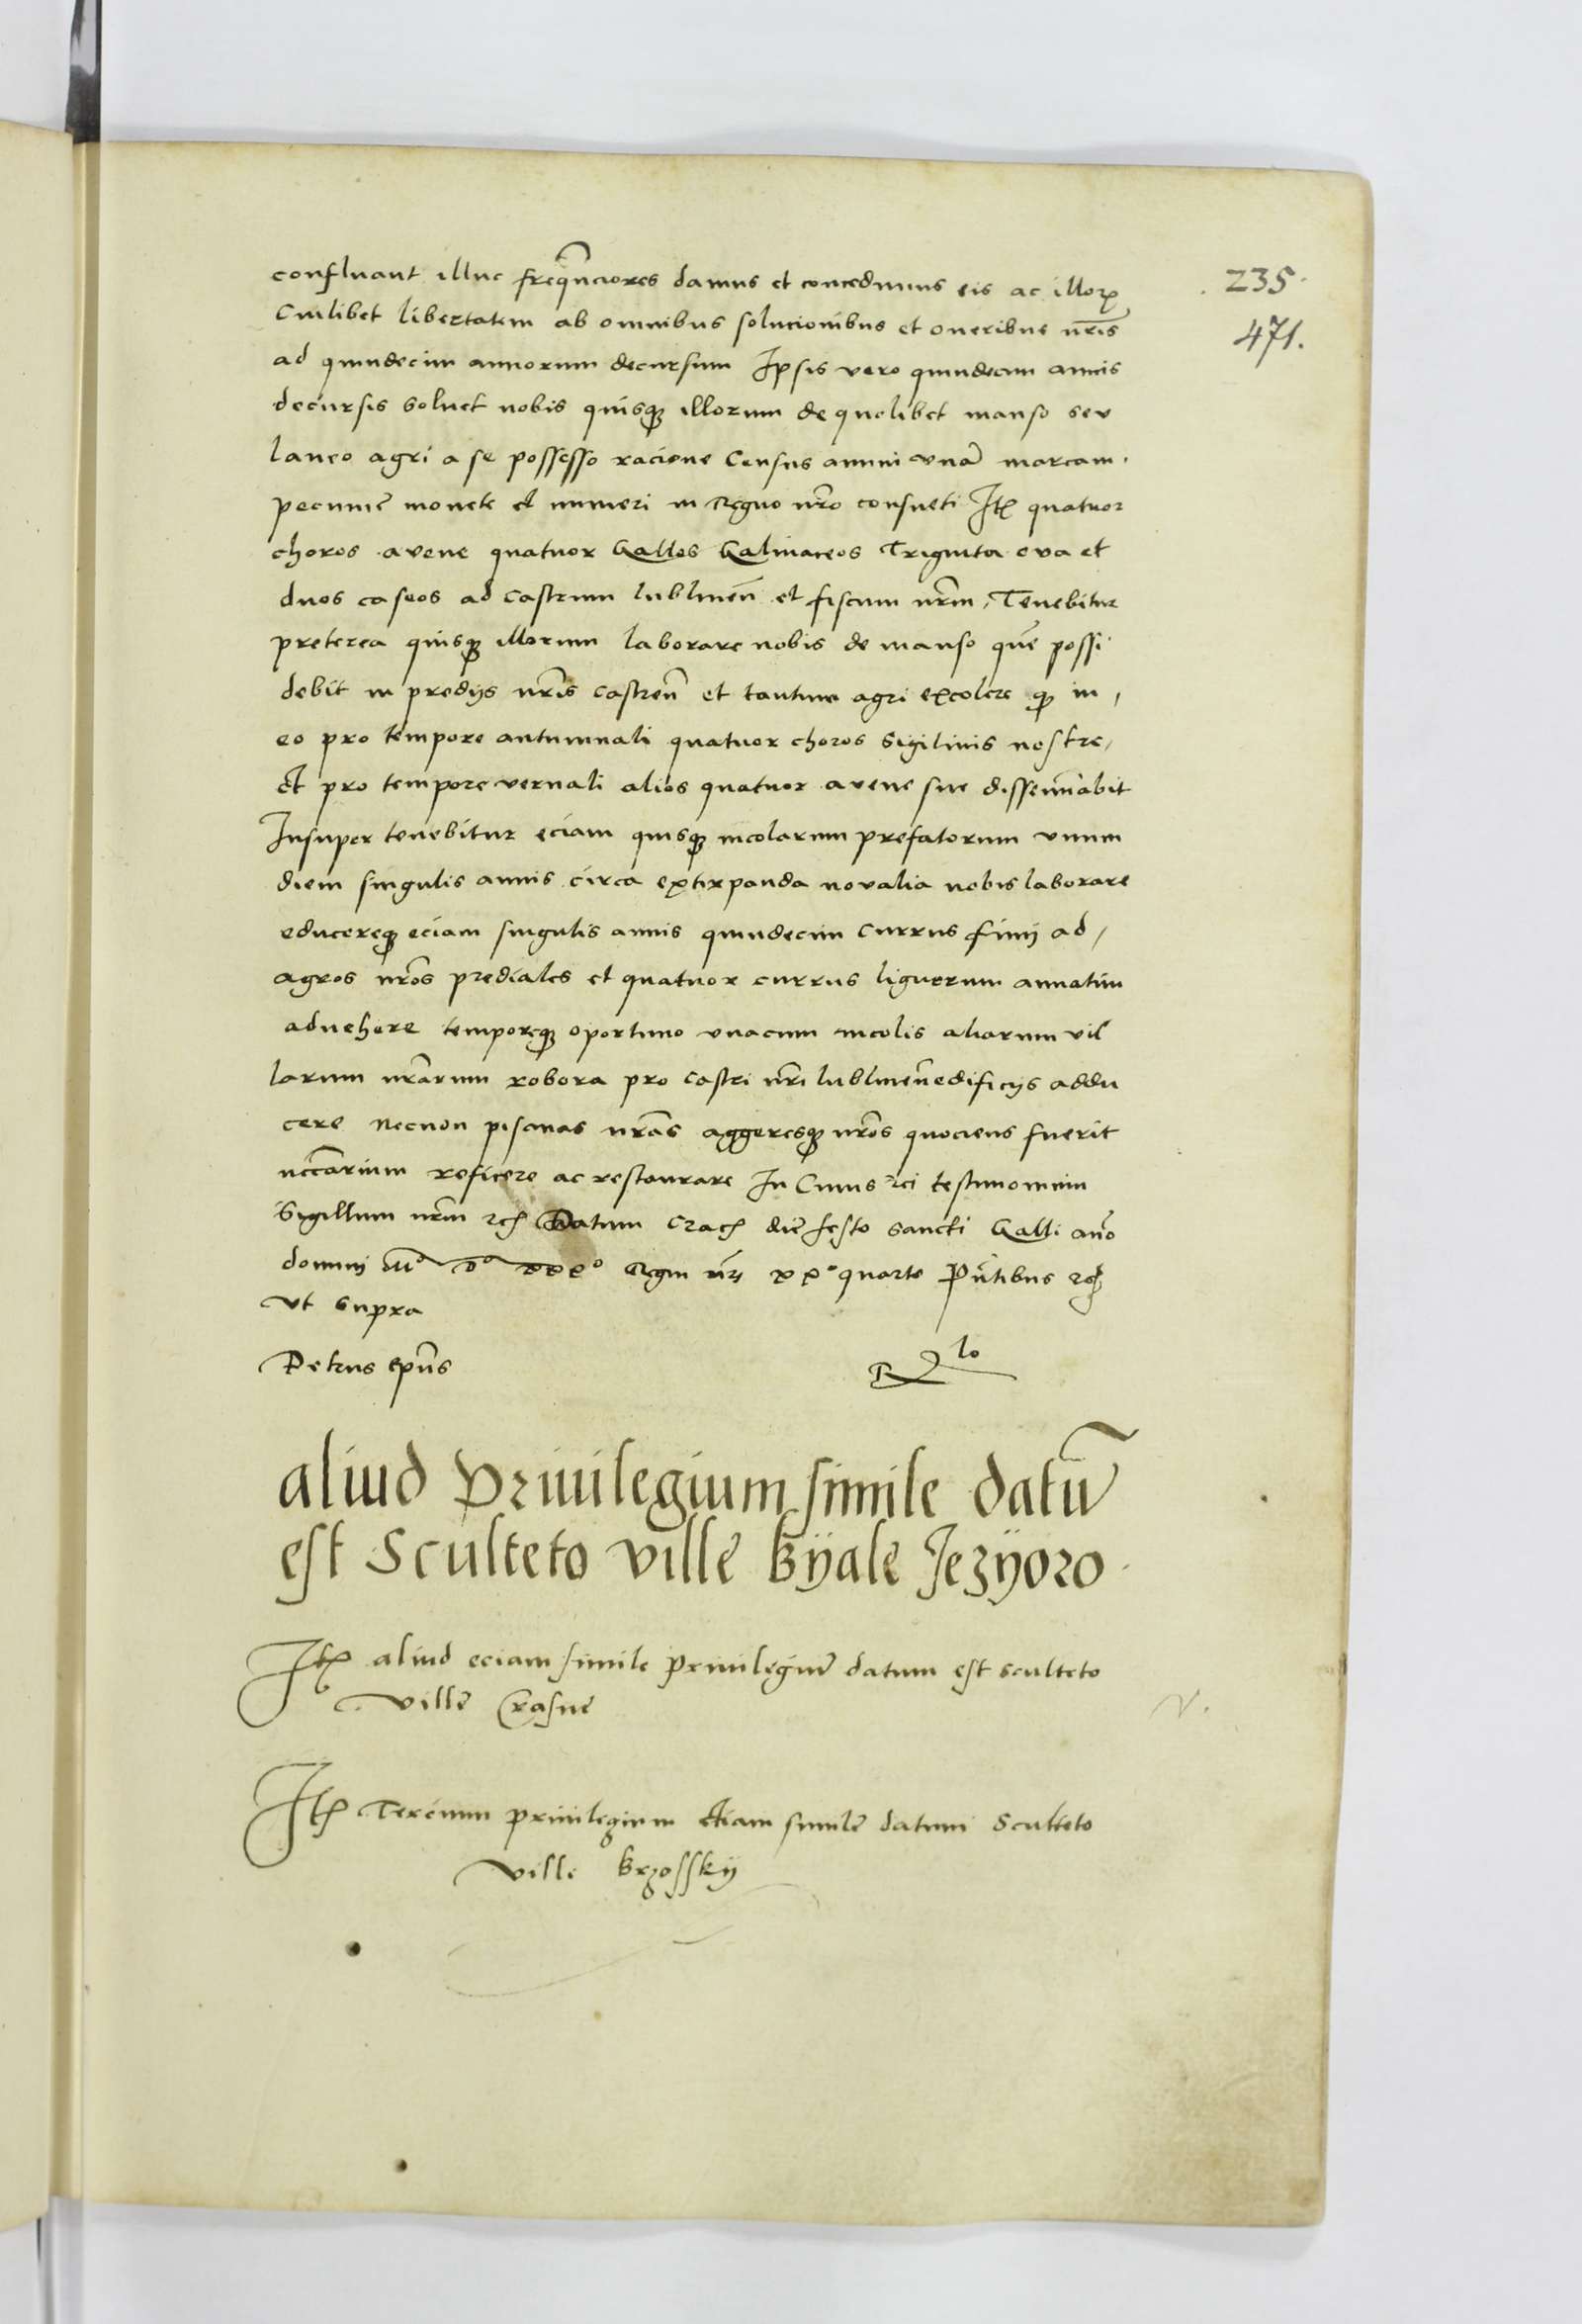 confluant illuc freqn̄ciores damus et concedimus eis ac illorꝝ
Cuilibet libertatem ab omnibus solucionibus et oneribus nr̄is
ad quindecim annorum decursum Ipsis vero quindecim annis
decursis soluet nobis quisqꝫ illorum de quolibet manso seu
laneo agri a se possesso racione Census annui vnā marcam.
pecunie monete et numeri in Regno nr̄o consueti Itꝫ quatuor
choros avene quatuor Gallos Galinaceos Triginta ova et
duos caseos ad castrum lublineñ et fiscum nr̄m, Tenebitur
preterea quisqꝫ illorum laborare nobis de manso quē possi
debit in predijs nr̄is castreñ et tantum agri excolere qꝫ in,
eo pro tempore autumnali quatuor choros Sigilinis nostre,
Et pro tempore vernali alios quatuor avene sue dissem̄inabit
Insuper tenebitur eciam quisqꝫ incolarum prefatorum vnum
diem singulis annis circa extirpanda novalia nobis laborare
educereqꝫ eciam singulis annis quindecim currus fimj ad,
agros nr̄os prediales et quatuor currus lignorum annatim
aduehere temporeqꝫ oportuno vnacum incolis aliarum vil
larum nr̄arum robora pro castri nr̄i lublineñ edificijs addu
cere Necnon piscinas nr̄as aggeresqꝫ nr̄os quociens fuerit
nccārium reficere ac restaurare In Cuius rei testimonium
Sigillum nr̄m rcꝫ Datum Cracꝫ die festo sancti Galli año
dominj Mº Dº xxxº Regni nr̄i xxº quarto Pn̄tibus rcꝫ
vt supra
Petrus ep̄us
aliud Priuilegium simile datū
est Sculteto ville Byale Jezyoro
Itꝫ aliud eciam simile priuilegiū datum est sculteto
ville Crasne
Itꝫ Tercium priuilegium etiam simile datum Sculteto
ville Brzossky
235.
471.